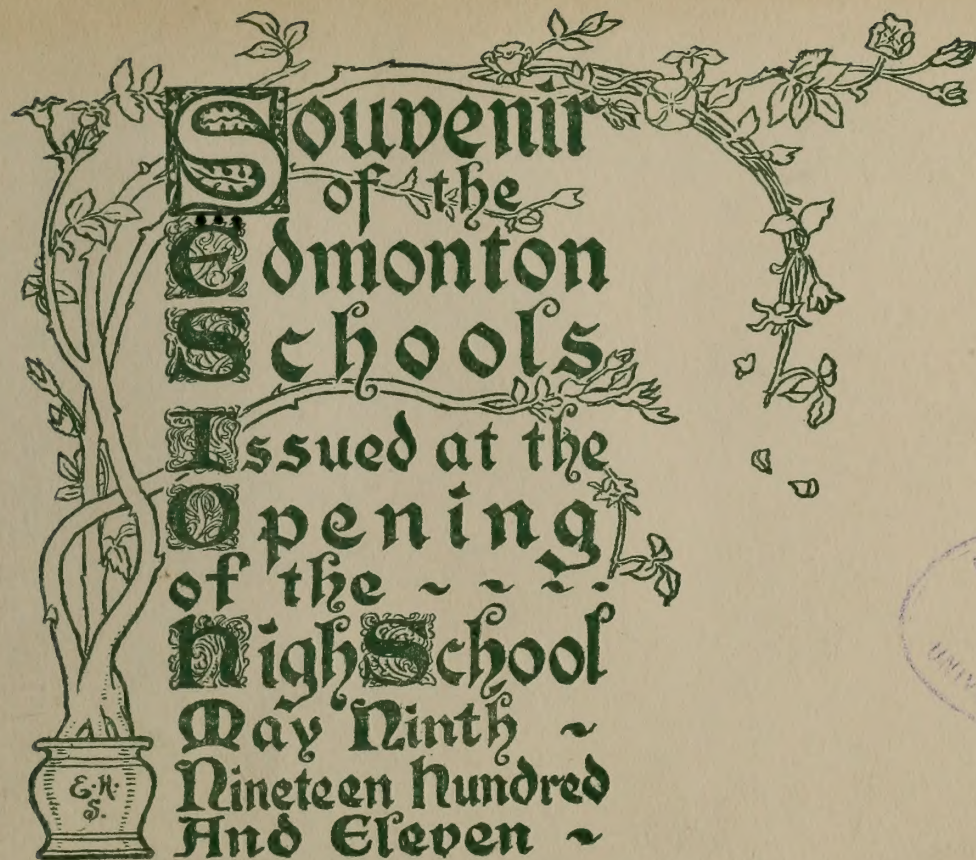 Souvenir
of the
Edmonton
Schools
Issued at the
Opening
of the ~ ~ ~ ~
High School
May Ninth ~
Nineteen Hundred
And Eleven ~
E·H·
S.